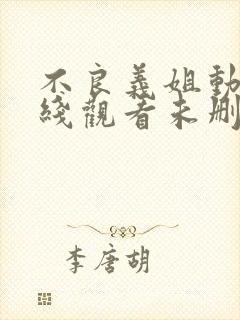 不良義姐動
綫觀看未刪
李唐胡